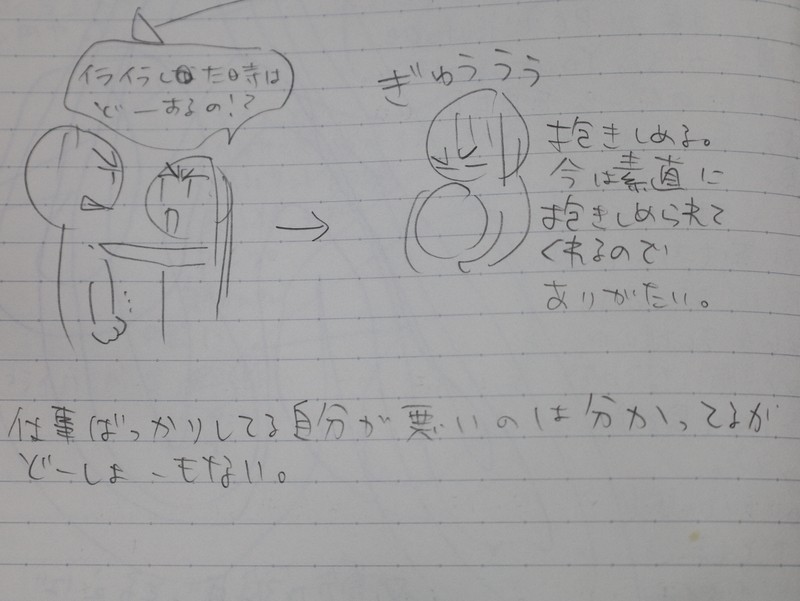 イライラした時は
どーするの!?
ぎゅううう
抱きしめる。
今は素直に
抱きしめられて
くれるので
ありがたい。
仕事ばっかりしてる自分が悪いのは分かってるが
どーしよーもない。